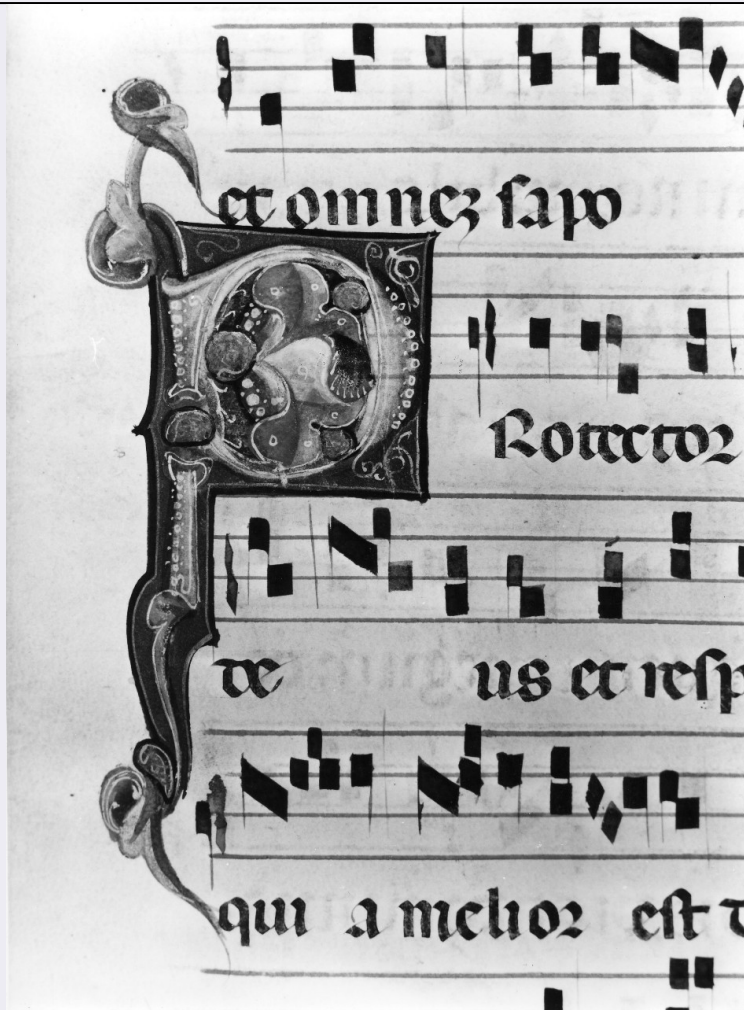 et omnez sapo
Protector
de us et resp
qui a melior est